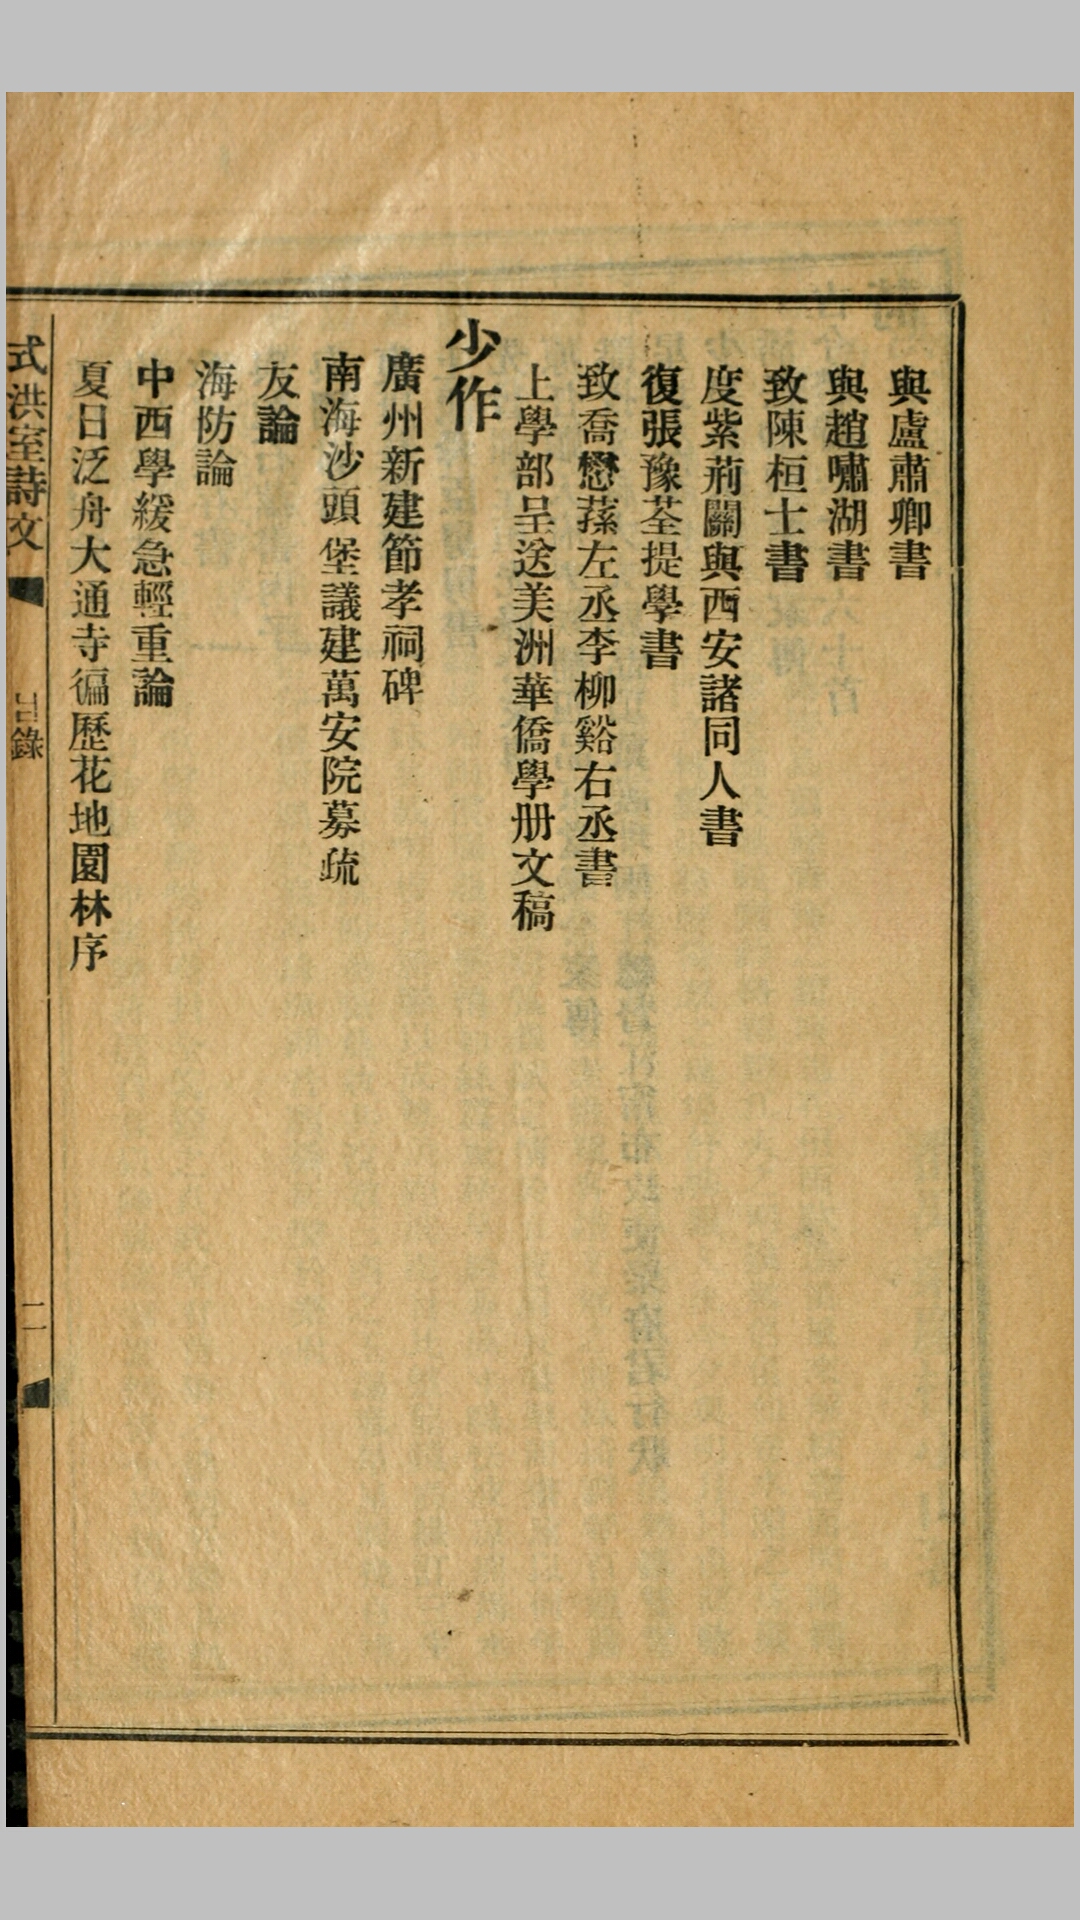 與盧肅卿書
與趙嘯湖書
致陳桓士書
度紫荊關與西安諸同人書
復張豫荃提學書
致喬懋蓀左丞李柳谿右丞書
上學部呈送美洲華僑學册文稿
少作
廣州新建節孝祠碑
南海沙頭堡議建萬安院募疏
友論
海防論
中西學緩急輕重論
夏日泛舟大通寺徧歷花地園林序
式洪室詩文
目錄
二